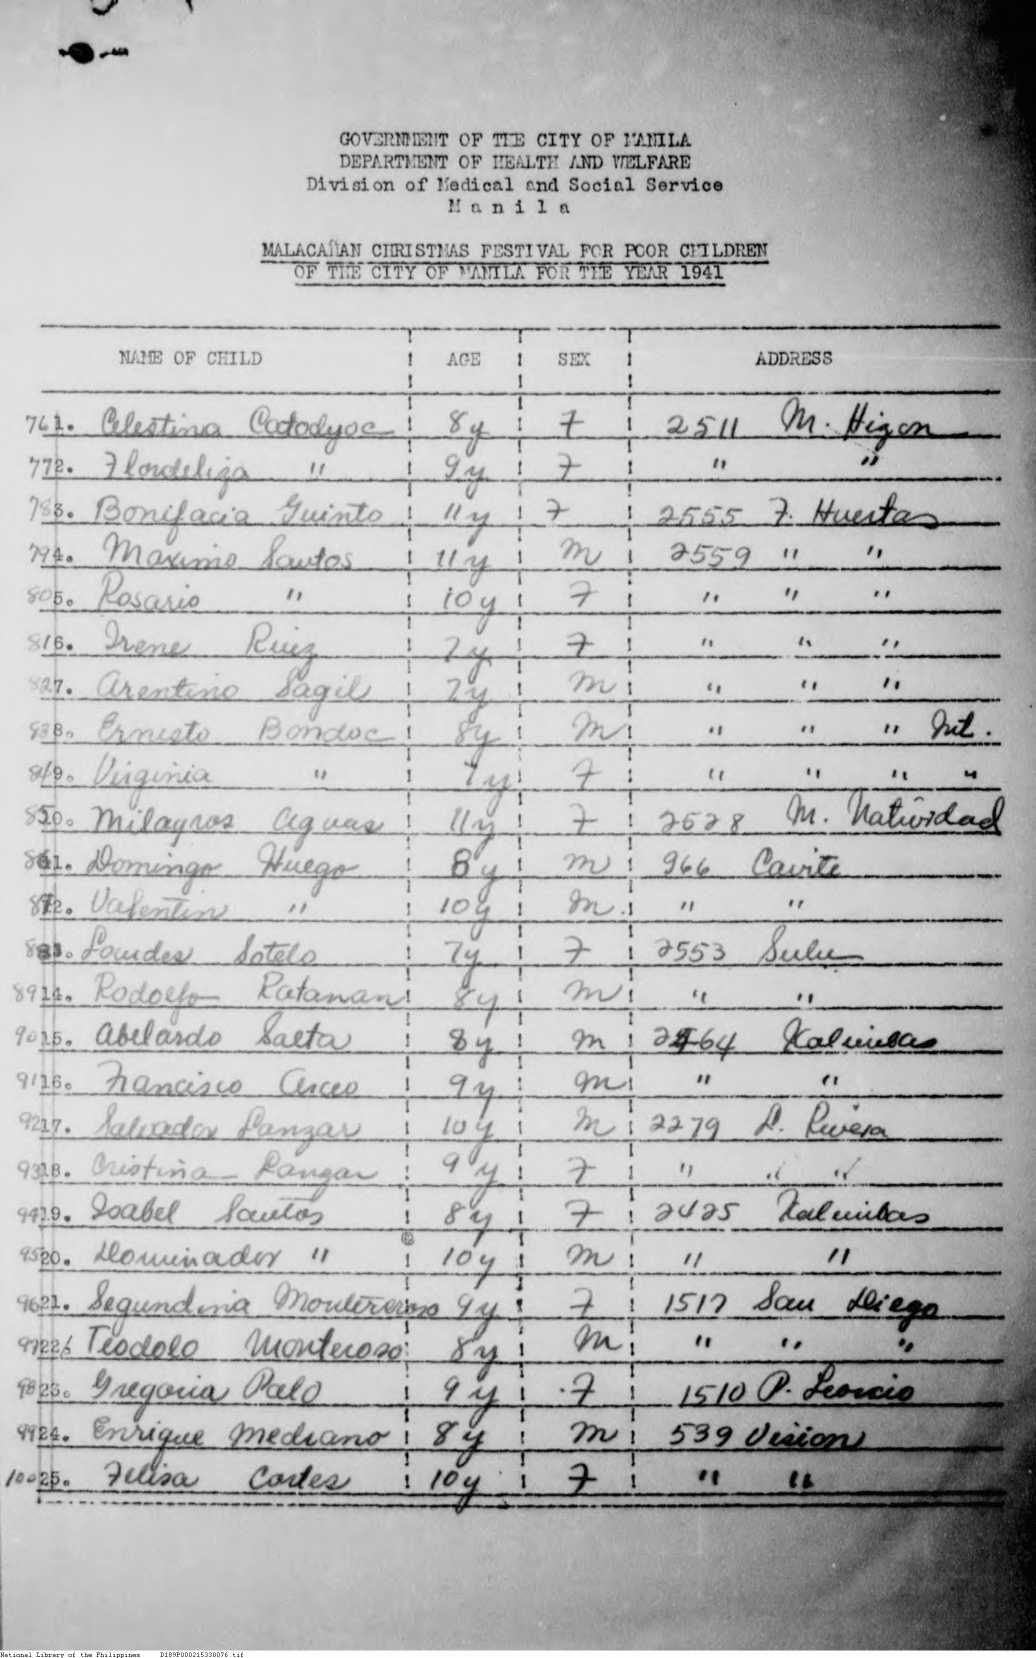 GOVERNMENT OF THE CITY OF MANILA
DEPARTMENT OF HEALTH AND WELFARE
Division of Medical and Social Service
M a n i l a
MALACAÑAN CHRISTMAS FESTIVAL FOR POOR CHILDREN
OF THE CITY OF MANILA FOR THE YEAR 1941
NAME OF CHILD AGE SEX ADDRESS
76 1. Celestina Catodyoc 8y F 2511 M. Hizon
77 2. Flordeliza " 9y F " "
78 3. Bonifacia Guinto 11y F 2555 F. Huertas
79 4. Maximo Santos 11y M 2559 " "
80 5. Rosario " 10y F " " "
81 6. Irene Ruiz 7y F " " "
82 7. Arentino Sagil 7y M " " "
83 8. Ernesto Bondoc 8y M " " " Int.
84 9. Virginia " 7y F " " " "
85 10. Milagros Aguas 11y F 2528 M. Natividad
86 11. Domingo Huego 8y M 966 Cavite
87 12. Valentin " 10y M " "
88 13. Lourdes Sotelo 7y F 2553 Sulu
89 14. Rodolfo Ratanan 8y M " "
90 15. Abelardo Saeta 8y M 2464 Kalimbas
91 16. Francisco Arceo 9y M " "
92 17. Salvador Lanzar 10y M 2279 L. Rivera
93 18. Cristina Lanzar 9y F " " "
94 19. Isabel Santos 8y F 2425 Kalimbas
95 20. Dominador " 10y M " "
96 21. Segundina Monteroso 9y F 1517 San Diego
97 22. Teodolo Monteroso 8y M " " "
98 23. Gregoria Palo 9y F 1510 P. Leoncio
99 24. Enrique Medrano 8y M 539 Vision
100 25. Felisa Cortes 10y F " "
National Library of the Philippines D189P000215330076.tif